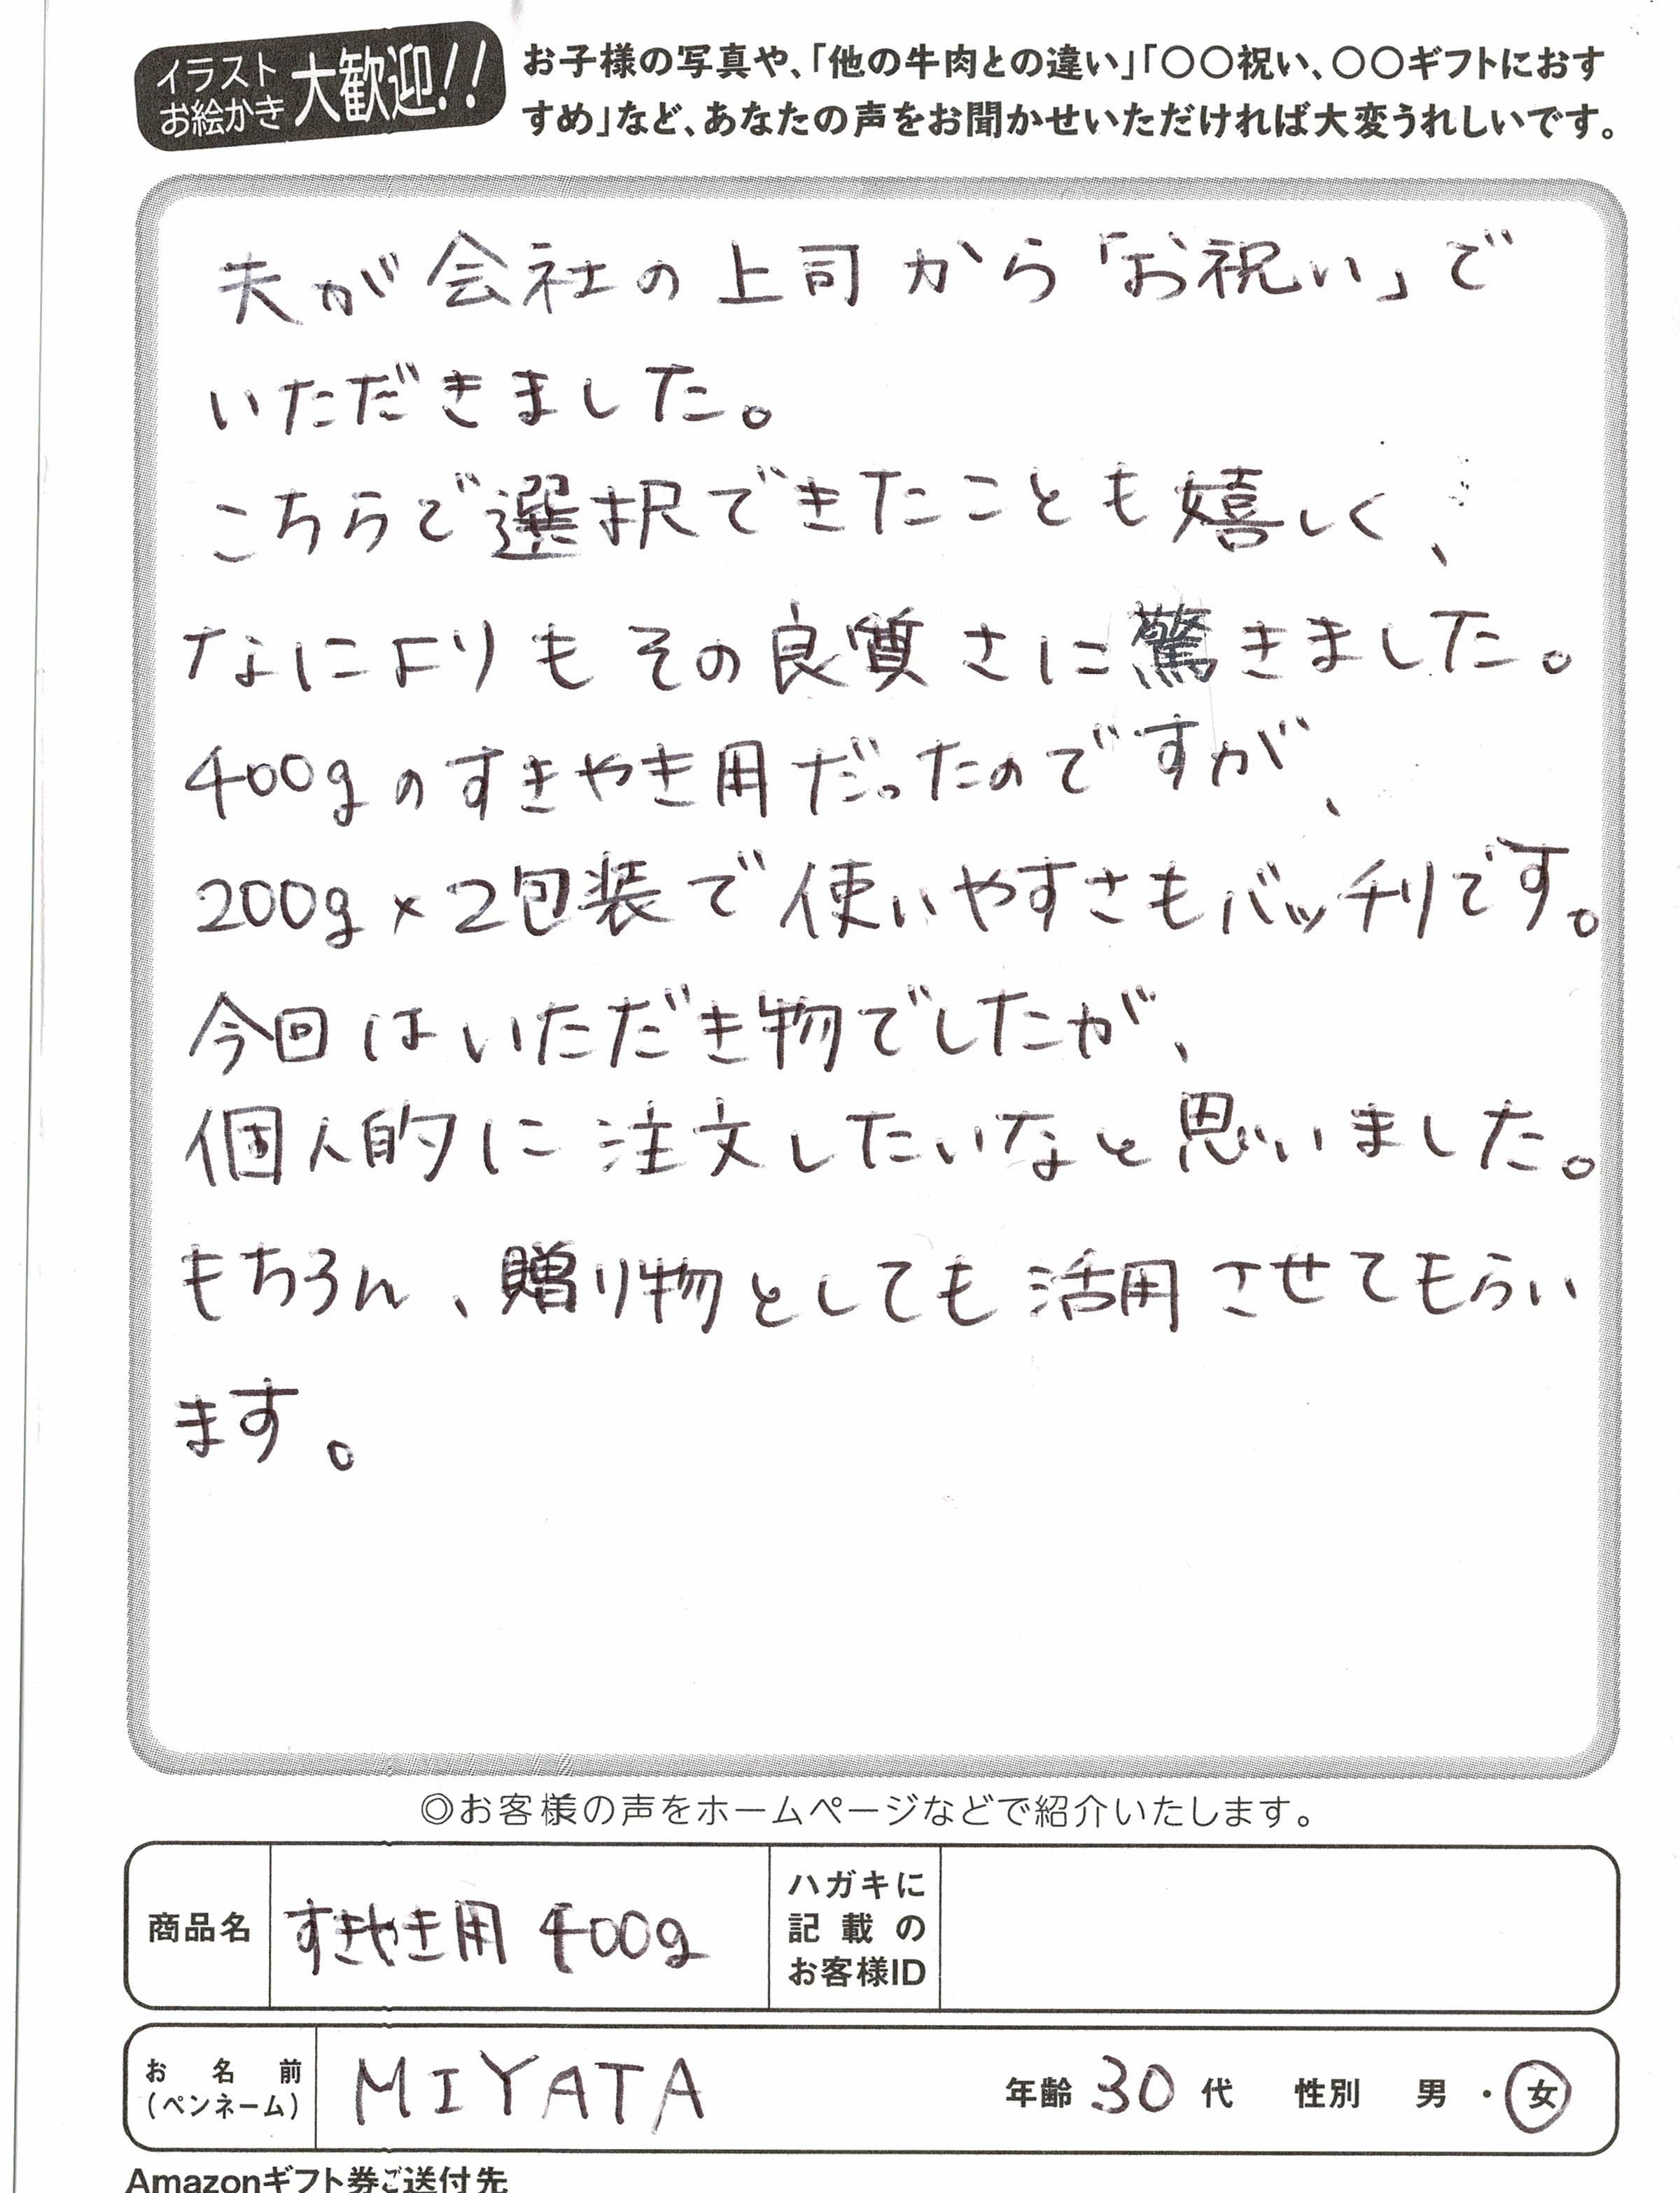 イラスト
お絵かき
大歓迎!!
お子様の写真や、「他の牛肉との違い」「〇〇祝い、〇〇ギフトにおす
すめ」など、あなたの声をお聞かせいただければ大変うれしいです。
夫が会社の上司から「お祝い」で
いただきました。
こちらで選択できたことも嬉しく、
なによりもその良質さに驚きました。
400gのすきやき用だったのですが、
200g×2包装で使いやすさもバッチリです。
今回はいただき物でしたが、
個人的に注文したいなと思いました。
もちろん、贈り物としても活用させてもらい
ます。
◎お客様の声をホームページなどで紹介いたします。
商品名 すきやき用 400g
ハガキに
記載の
お客様ID
お名前
(ペンネーム)
MIYATA 年齢 30 代 性別 男・女
Amazonギフト券ご送付先